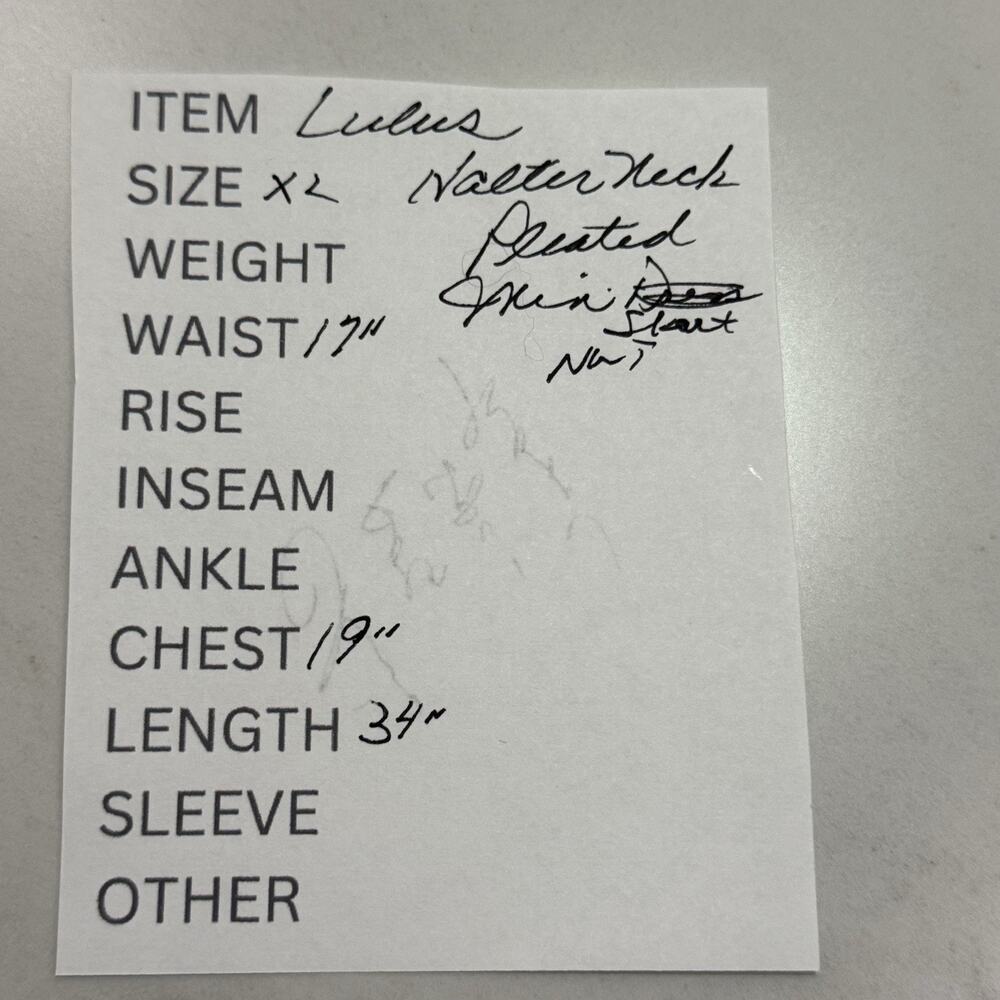 ITEM Lulus
SIZE X2 Halter Neck
Pleated
WEIGHT
Mini
Skort
WAIST 17"
NWT
RISE
INSEAM
ANKLE
CHEST 19"
LENGTH 34"
SLEEVE
OTHER